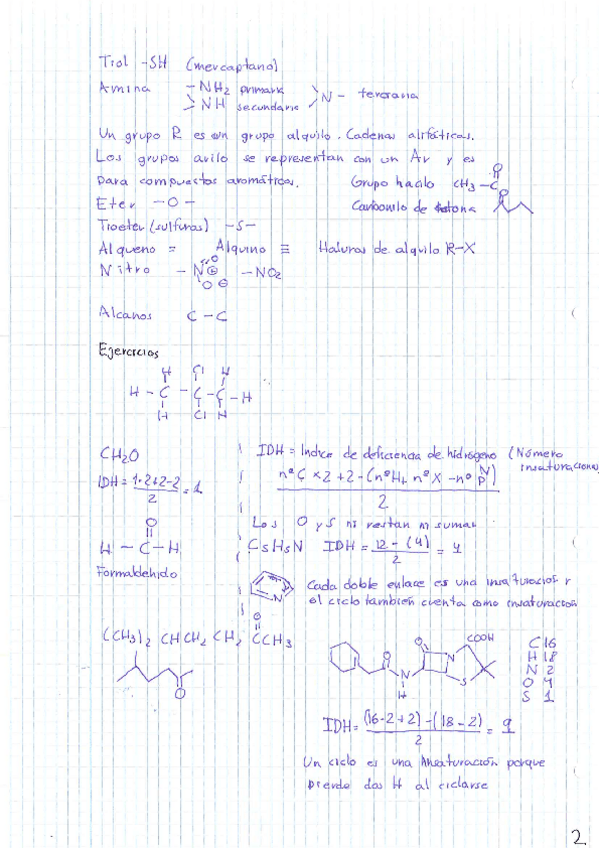 Tiol -SH (mercaptano)
Amina -NH2 primaria >N- terciaria
>NH secundaria
Un grupo R es un grupo alquilo. Cadenas alifáticas.
Los grupos arilo se representan con un Ar y es
para compuestos aromáticos. Grupo hacilo CH3-C
O
Eter -O- Carbonilo de cetona
O
Tioeter (sulfuros) -S-
Alqueno = Alquino ≡ Haluros de alquilo R-X
Nitro -N⊕ O O⊖ -NO2
Alcanos C-C
Ejercicios
H Cl H
H - C - C - C - H
H Cl H
CH2O IDH = Indice de deficiencia de hidrógeno (Número
insaturaciones)
IDH = 1·2+2-2 / 2 = 1 nº C x2 +2 - (nº H + nº X - nº N P) / 2
Los O y S ni restan ni suman
O
H - C - H C5H5N IDH = 12 - (4) / 2 = 4
Formaldehido
N
Cada doble enlace es una insaturación y
el ciclo también cuenta como insaturación
O
(CH3)2 CHCH2 CH2 CCH3
O
O N H O N S COOH
C 16
H 18
N 2
O 4
S 1
IDH = (16·2+2) - (18-2) / 2 = 9
Un ciclo es una insaturación porque
pierde dos H al ciclarse
2